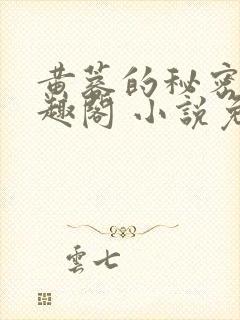 黄蓉的秘密
趣閣 小說免
雲七